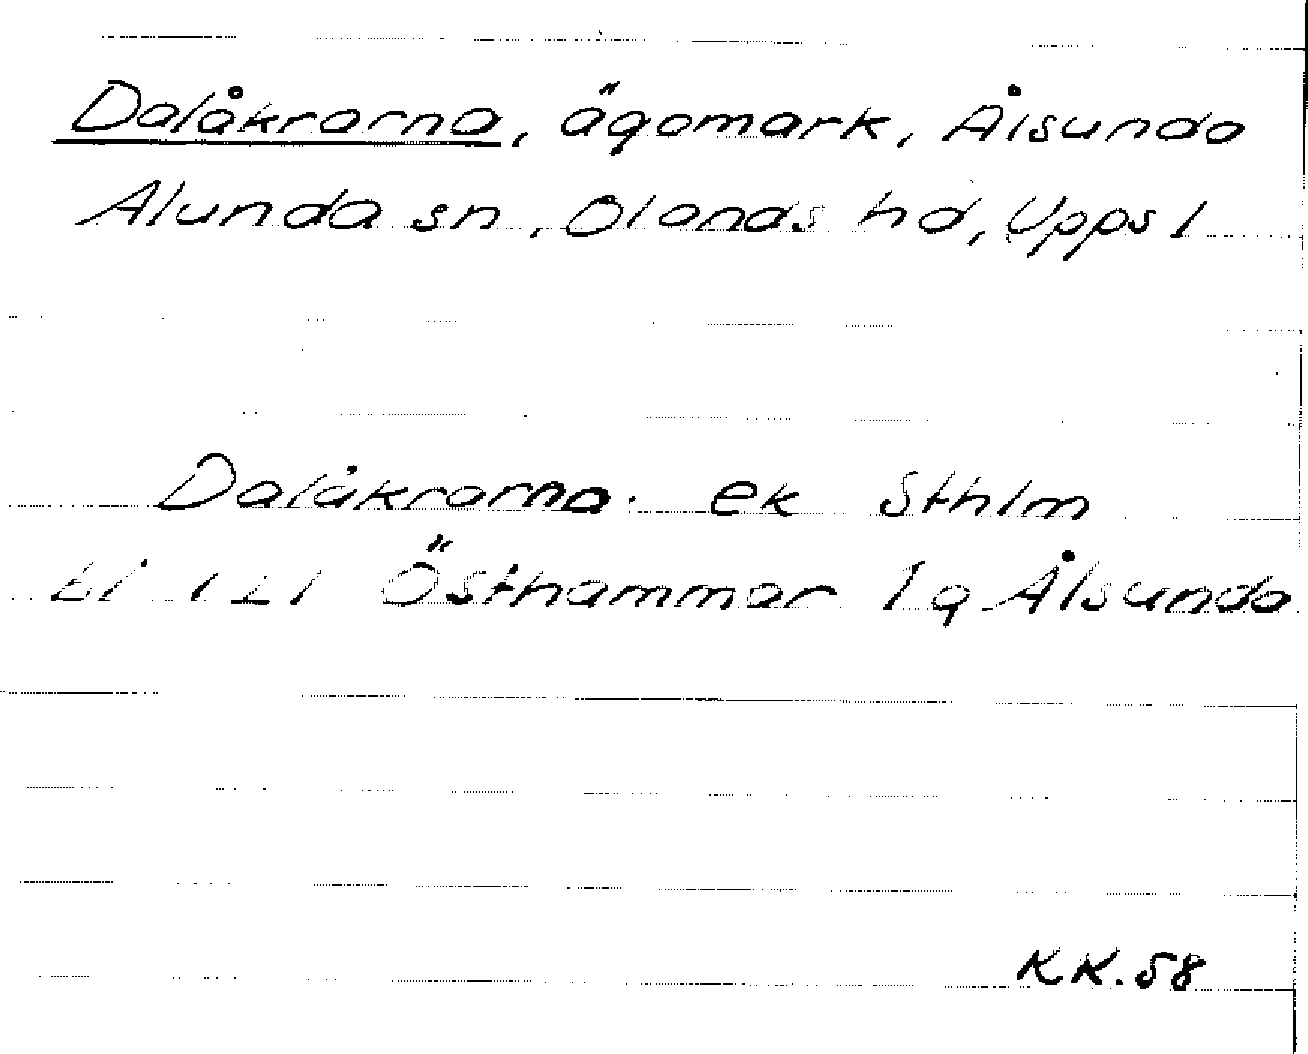 Dalåkrarna, ägomark, Ålsunda
Alunda sn, Olands hd, Upps l
Dalåkrarna. ek Sthlm
bl 121 Östhammar lg Ålsunda
KK.58